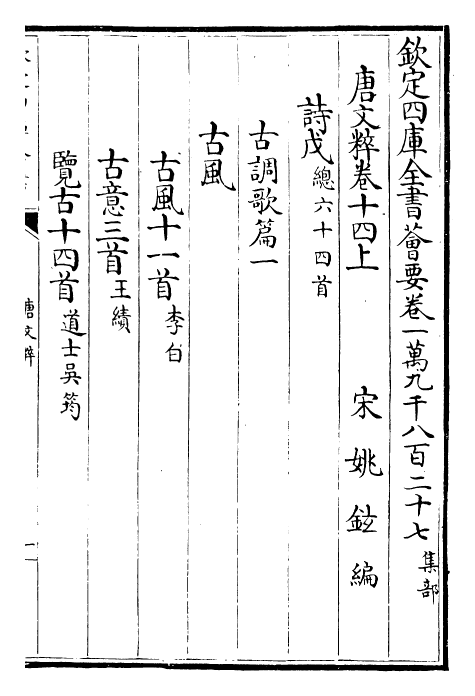 欽定四庫全書薈要卷一萬九千八百二十七 集部
唐文粹卷十四上 宋 姚鉉 編
詩戊 總六十四首
古調歌篇一
古風
古風十一首 李白
古意三首 王績
覽古十四首 道士吳筠
唐文粹
一